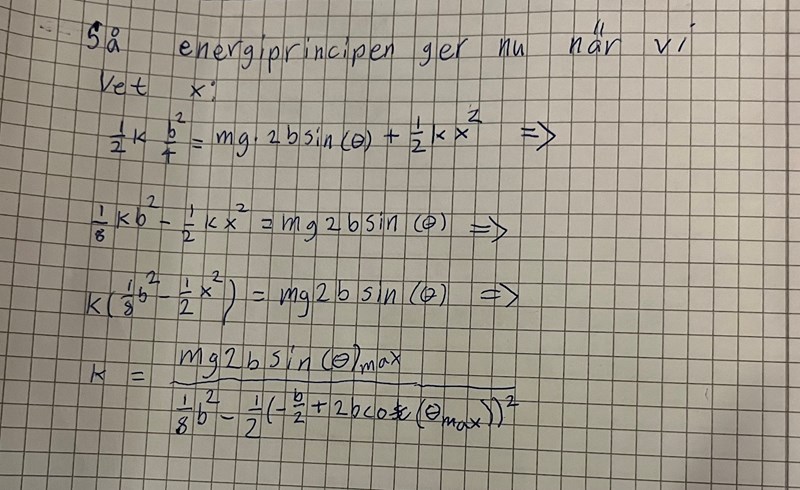 Så energiprincipen ger nu när vi
Vet x:
1/2 k b²/4 = mg·2b sin(θ) + 1/2 k x² =>
1/8 kb² - 1/2 kx² = mg2b sin(θ) =>
k(1/8 b² - 1/2 x²) = mg2b sin(θ) =>
k = mg2b sin(θ)max / (1/8 b² - 1/2 (-b/2 + 2b cos(θmax))²)